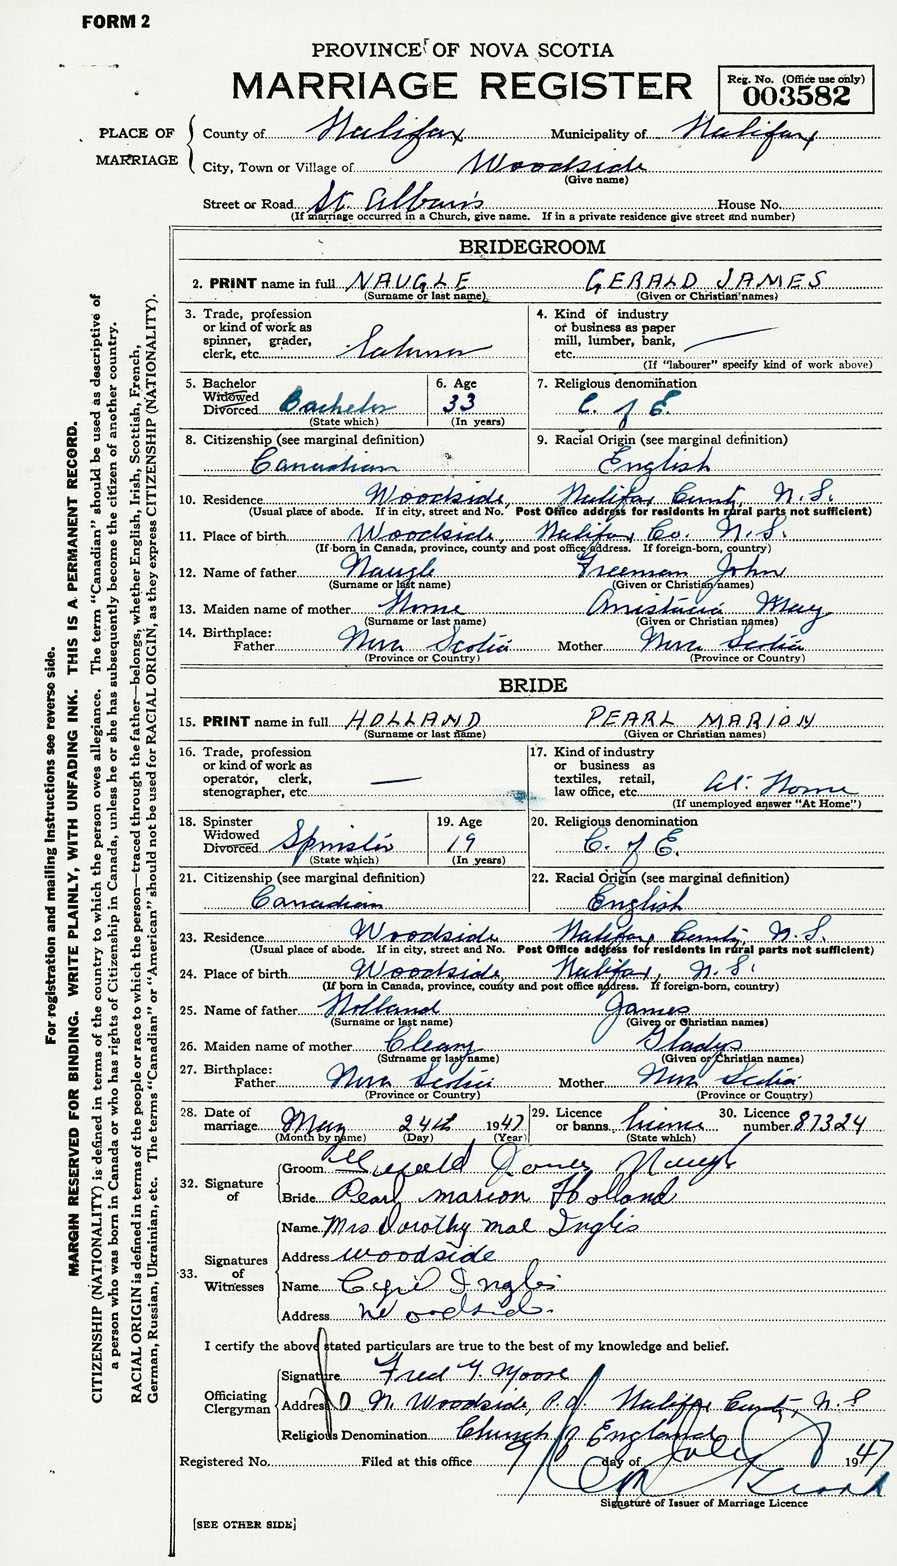 FORM 2
PROVINCE OF NOVA SCOTIA
MARRIAGE REGISTER
Reg. No. (Office use only)
003582
PLACE OF MARRIAGE
County of Halifax Municipality of Halifax
City, Town or Village of Woodside
(Give name)
Street or Road St. Alban's House No.
(If marriage occurred in a Church, give name. If in a private residence give street and number)
BRIDEGROOM
2. PRINT name in full NAUGLE GERALD JAMES
(Surname or last name) (Given or Christian names)
3. Trade, profession or kind of work as spinner, grader, clerk, etc.
4. Kind of industry or business as paper mill, lumber, bank, etc. —
(If "labourer" specify kind of work above)
5. Bachelor Widowed Divorced Bachelor
(State which)
6. Age 33
(In years)
7. Religious denomination C. of E.
8. Citizenship (see marginal definition) Canadian
9. Racial Origin (see marginal definition) English
10. Residence Woodside, Halifax County, N.S.
(Usual place of abode. If in city, street and No. Post Office address for residents in rural parts not sufficient)
11. Place of birth Woodside, Halifax Co. N.S.
(If born in Canada, province, county and post office address. If foreign-born, country)
12. Name of father Naugle Freeman John
(Surname or last name) (Given or Christian names)
13. Maiden name of mother Horne May
(Surname or last name) (Given or Christian names)
14. Birthplace: Father Nova Scotia Mother Nova Scotia
(Province or Country) (Province or Country)
BRIDE
15. PRINT name in full HOLLAND PEARL MARION
(Surname or last name) (Given or Christian names)
16. Trade, profession or kind of work as operator, clerk, stenographer, etc. —
17. Kind of industry or business as textiles, retail, law office, etc. At Home
(If unemployed answer "At Home")
18. Spinster Widowed Divorced Spinster
(State which)
19. Age 19
(In years)
20. Religious denomination C. of E.
21. Citizenship (see marginal definition) Canadian
22. Racial Origin (see marginal definition) English
23. Residence Woodside Halifax County, N.S.
(Usual place of abode. If in city, street and No. Post Office address for residents in rural parts not sufficient)
24. Place of birth Woodside, Halifax, N.S.
(If born in Canada, province, county and post office address. If foreign-born, country)
25. Name of father Holland James
(Surname or last name) (Given or Christian names)
26. Maiden name of mother Cleary Gladys
(Surname or last name) (Given or Christian names)
27. Birthplace: Father Nova Scotia Mother Nova Scotia
(Province or Country) (Province or Country)
28. Date of marriage May 24th 1947
(Month by name) (Day) (Year)
29. Licence or banns license
(State which)
30. Licence number 87324
32. Signature of
Groom Gerald James Naugle
Bride Pearl Marion Holland
33. Signatures of Witnesses
Name Mrs Dorothy Mae Inglis
Address Woodside
Name Cyril Inglis
Address Woodside.
I certify the above stated particulars are true to the best of my knowledge and belief.
Officiating Clergyman
Signature Fred Y. Moore
Address N. Woodside, P.O. Halifax County, N.S
Religious Denomination Church of England
Registered No. Filed at this office 9 day of July 1947
Signature of Issuer of Marriage Licence
[SEE OTHER SIDE]
For registration and mailing instructions see reverse side.
MARGIN RESERVED FOR BINDING. WRITE PLAINLY, WITH UNFADING INK. THIS IS A PERMANENT RECORD.
CITIZENSHIP (NATIONALITY) is defined in terms of the country to which the person owes allegiance. The term "Canadian" should be used as descriptive of
a person who was born in Canada or who has rights of Citizenship in Canada, unless he or she has subsequently become the citizen of another country.
RACIAL ORIGIN is defined in terms of the people or race to which the person—traced through the father—belongs, whether English, Irish, Scottish, French,
German, Russian, Ukrainian, etc. The terms "Canadian" or "American" should not be used for RACIAL ORIGIN, as they express CITIZENSHIP (NATIONALITY).